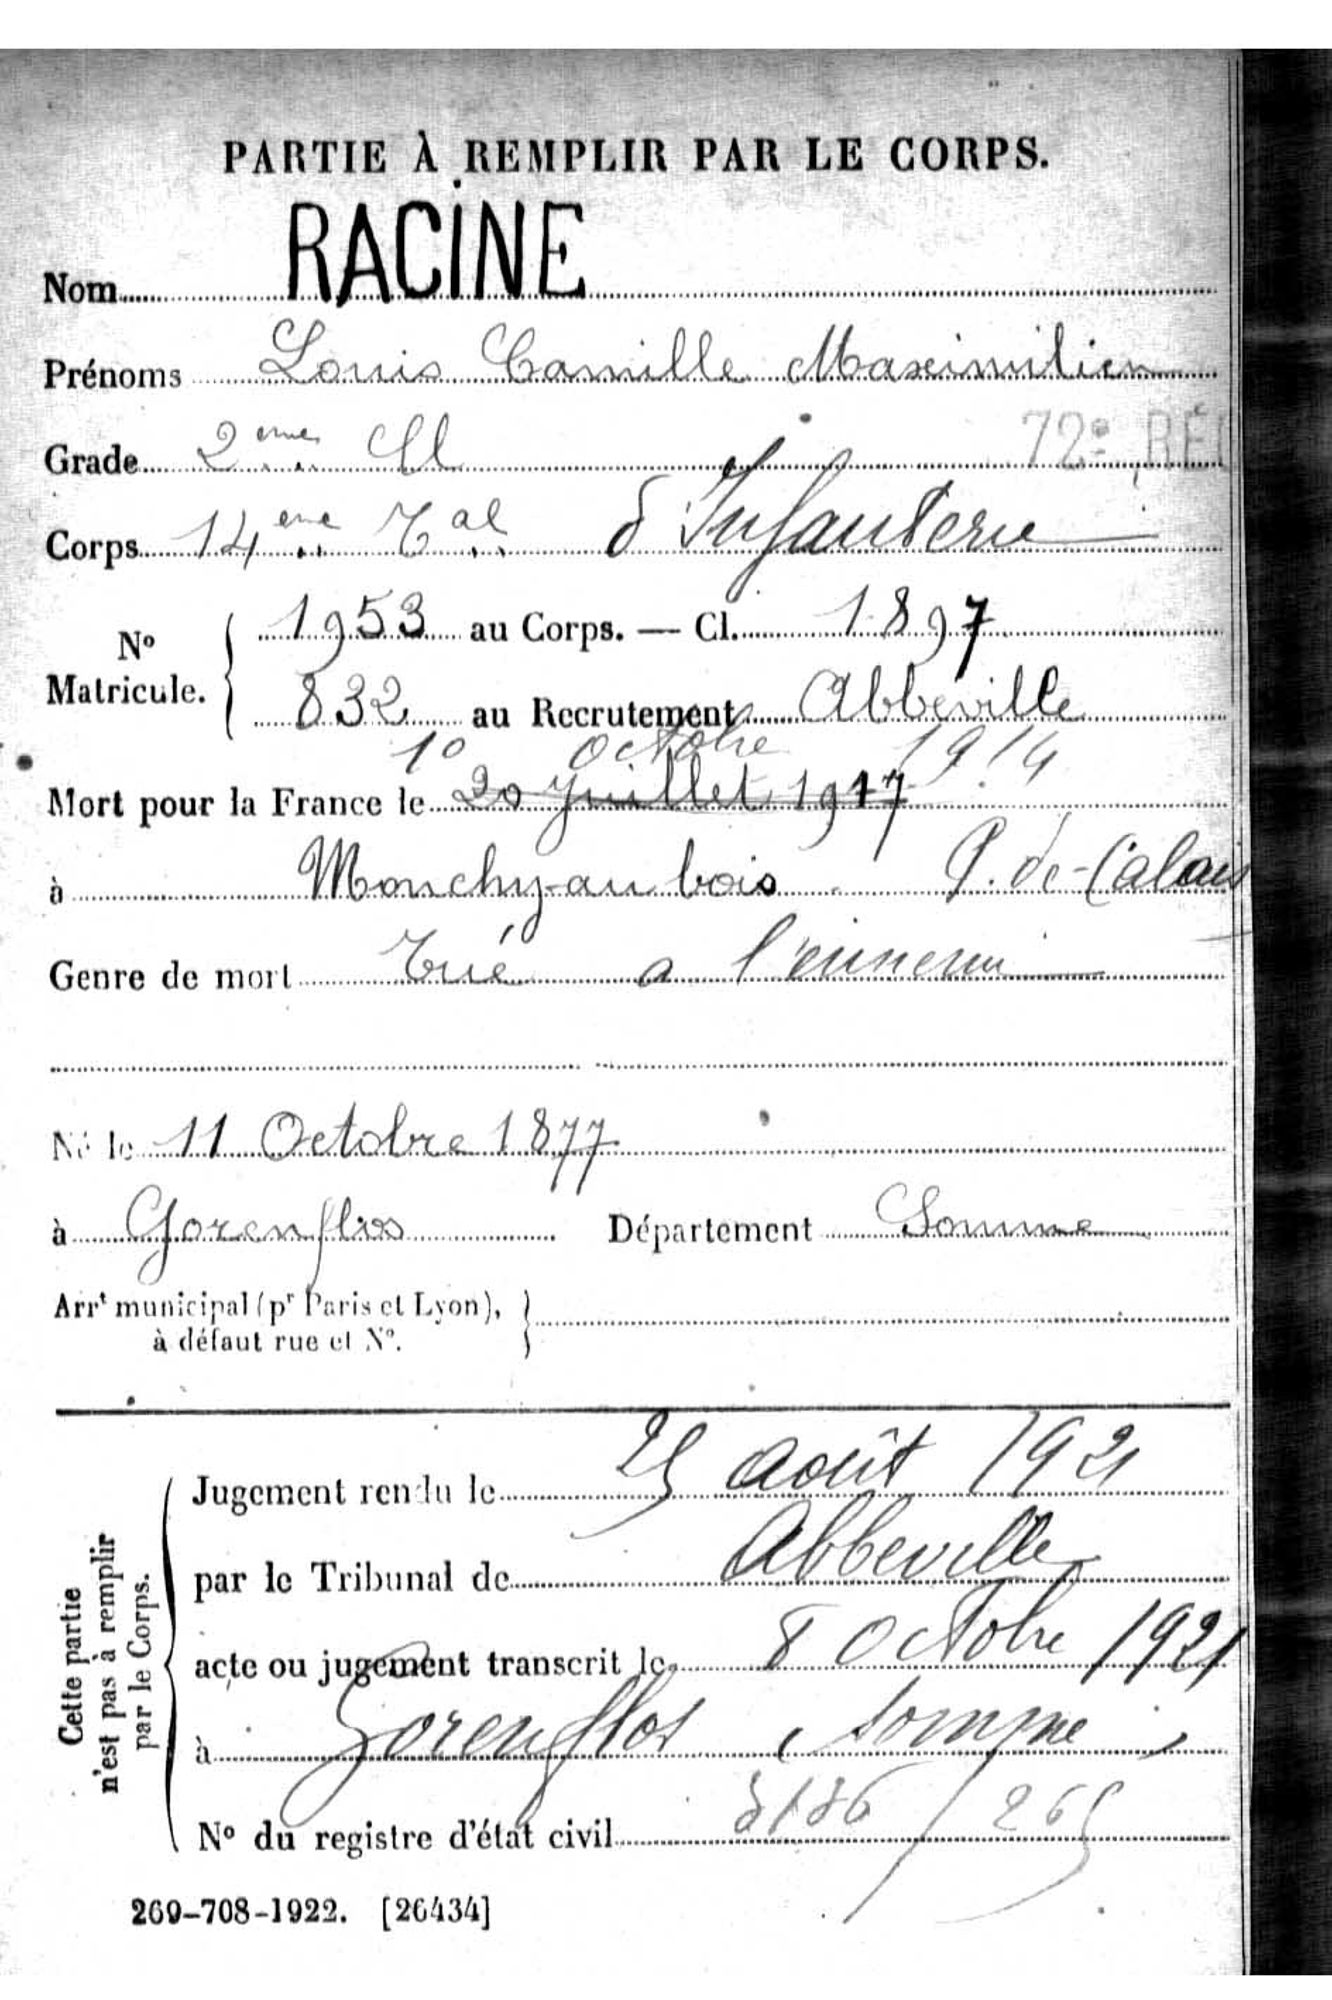 PARTIE À REMPLIR PAR LE CORPS.
Nom RACINE
Prénoms Louis Camille Maximilien
Grade 2ème Cl 72e RÉ
Corps 14ème Tal d'Infanterie
No Matricule. 1953 au Corps. — Cl. 1897
832 au Recrutement Abbeville
1o octobre 1914
Mort pour la France le 20 Juillet 1917
à Monchy-au bois P.-de-Calais
Genre de mort Tué a l'ennemi
Né le 11 Octobre 1877
à Gorenflos Département Somme
Arrt municipal (pr Paris et Lyon),
à défaut rue et No.
Cette partie n'est pas à remplir par le Corps.
Jugement rendu le 25 août 1921
par le Tribunal de Abbeville
acte ou jugement transcrit le 8 octobre 1921
à Gorenflos (Somme)
No du registre d'état civil / 265
269-708-1922. [26434]